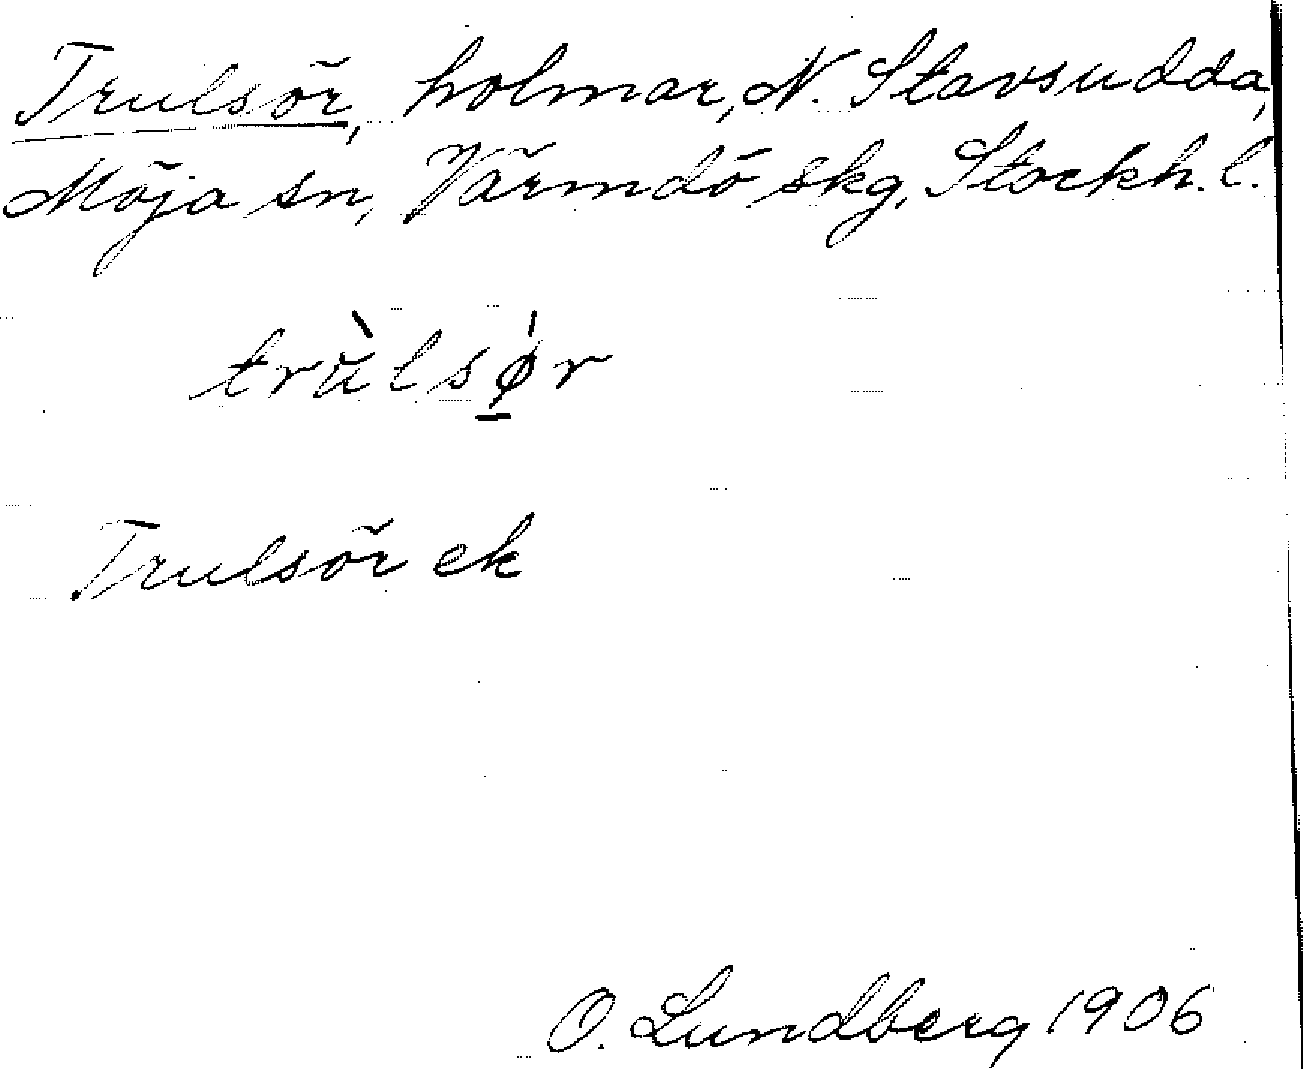 Trulsör, holmar, N. Stavsudda,
Möja sn, Värmdö skg, Stockh. l.
trùlsǿ̠r
Trulsör ek
O. Lundberg 1906